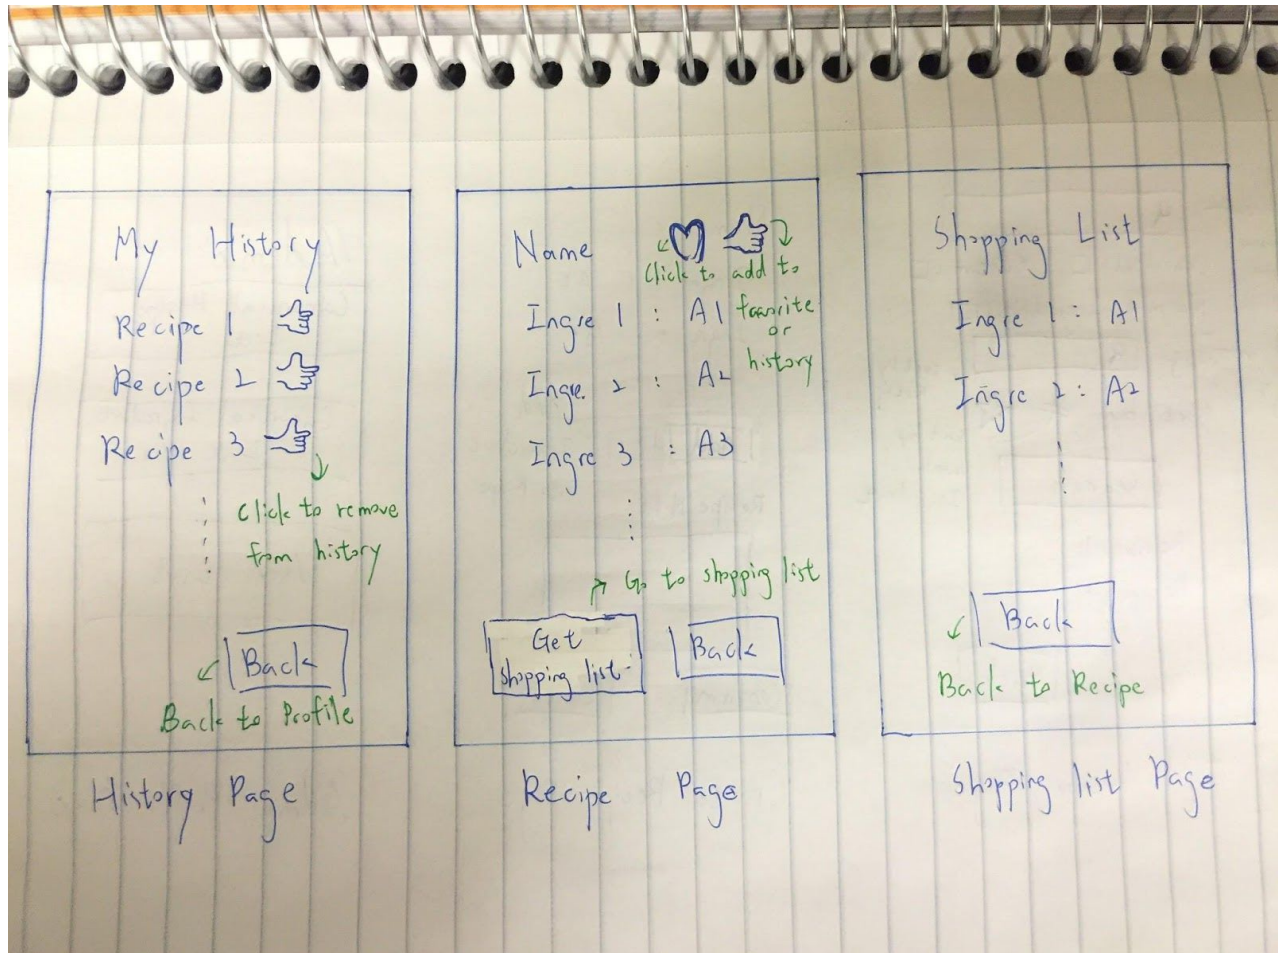 My History
Recipe 1
Recipe 2
Recipe 3
Click to remove
from history
Back
Back to Profile
History Page
Name
Click to add to
favorite
or
history
Ingre 1 : A1
Ingre 2 : A2
Ingre 3 : A3
Go to shopping list
Get
shopping list
Back
Recipe Page
Shopping List
Ingre 1 : A1
Ingre 2 : A2
Back
Back to Recipe
Shopping list Page